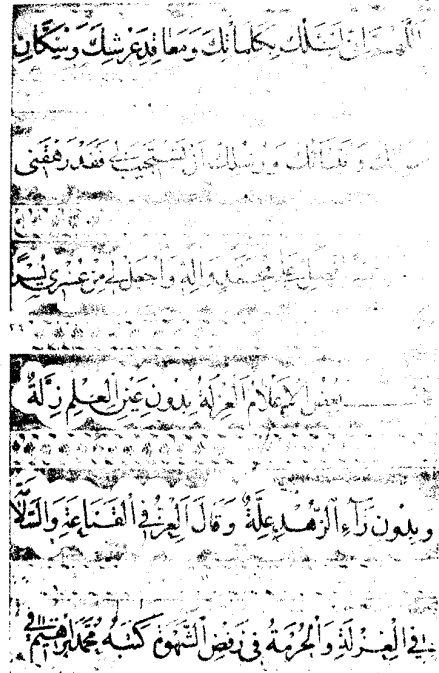 اللهم اني اسألك بكلماتك ومعاقد عرشك وسكان
وانبيائك ورسلك ان تستجيب لي فقد رهقني
صلى على محمد وآله واجعل لي من عسري يسرا
بعض الاعلام العزلة بدون عين العلم زلة
وبدون زاء الزهد علة وقال العز في القناعة والذل
في العزلة والحرمة في رفض الشهوة كتبه محمد ابراهيم